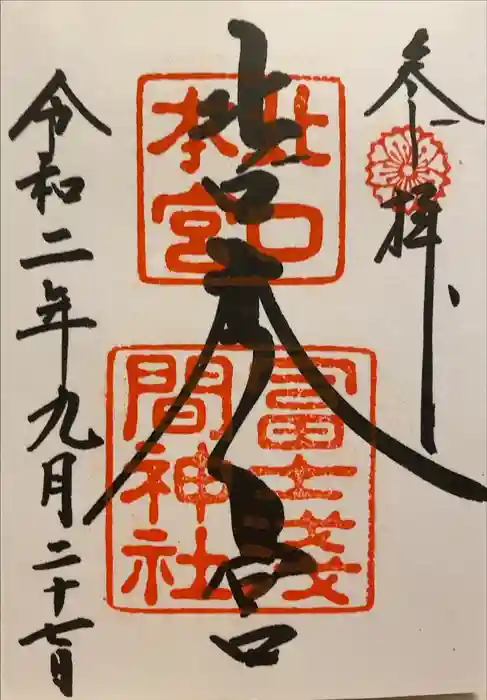 参拝
北口本宮
北口
本宮
冨士淺
間神社
令和二年九月二十七日